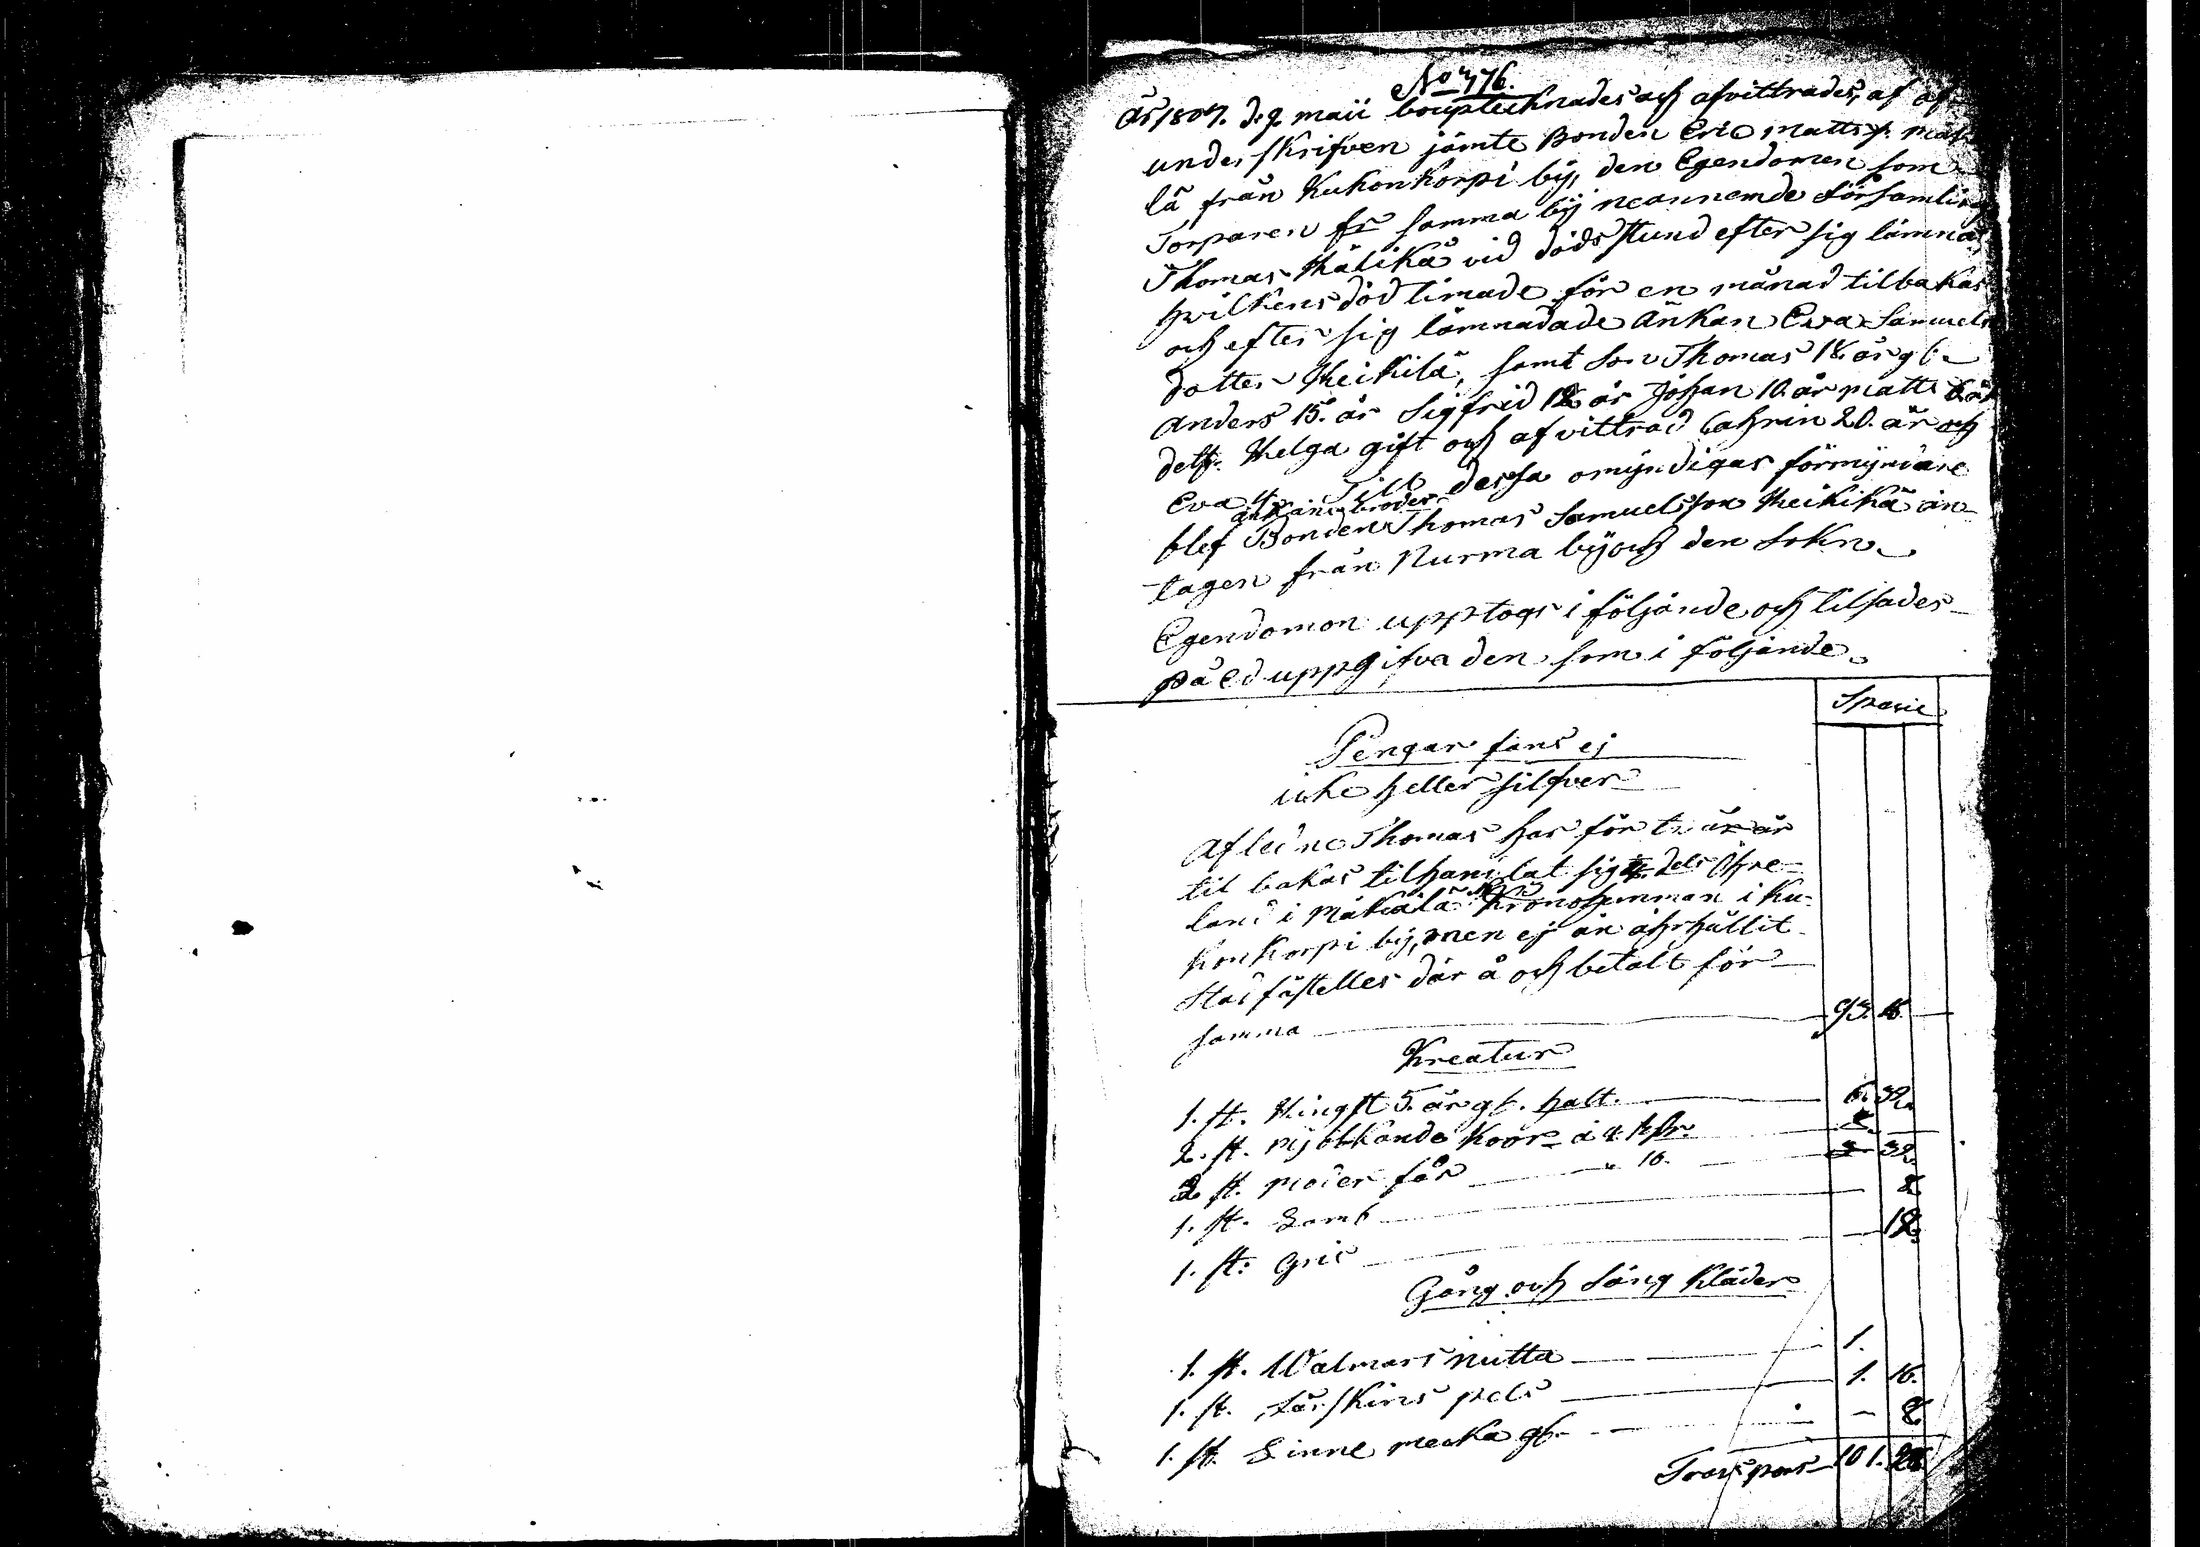 No 376.
År 1807. d. 9. maii bouptecknades och afvittrades, af
underskrifven jämte Bonden Eric Matts
lä från Kukonkorpi bÿ, den Egendomen som
Torparen fr samma bÿ församling
Thomas vid dödsstund efter sig lämnat
hvilkens död timade för en månad tilbakas
och efter sig lämnadade Änkan Eva Samuels
dotter Heikilä, samt Son Thomas 18. år gl.
Anders 15. år Sigfrid 12 år Johan 10. år Matts 6. år
dott. Helga gift och afvittrad Cahrin 20. år och
Eva Till dessa omÿndigas förmÿndare
änkans broder
blef Bonden Thomas Samuelsson Heikilä än-
tagen från Nurma bÿ och den Sokn.
Egendomen upptogs i följande och tilsades
på ed uppgifva den som i följande.
Specie
Pengar fans ej
icke heller silfver
Afledne Thomas har för år
til bakas tilhandlat sig dels öhre-
land i Mäkälä Kronohemman i Ku-
konkorpi bÿ, men ej än ährhållit
Stadfästelles där å och betalt för
samma 93. 16.
Kreatur
1. st. Hingst 5. år gl. halt. 6. 32.
2. st. Mjölkande Koor à 4. 8.
2 st. moder får " 16. 32.
1. st. Lamb 8
1. st: Gris 12.
Gång och Säng Kläder
1. st. Walmars 1.
1. st. Fårskins pels 1. 16.
1. st. Linne gl. — 8.
Transport 101.